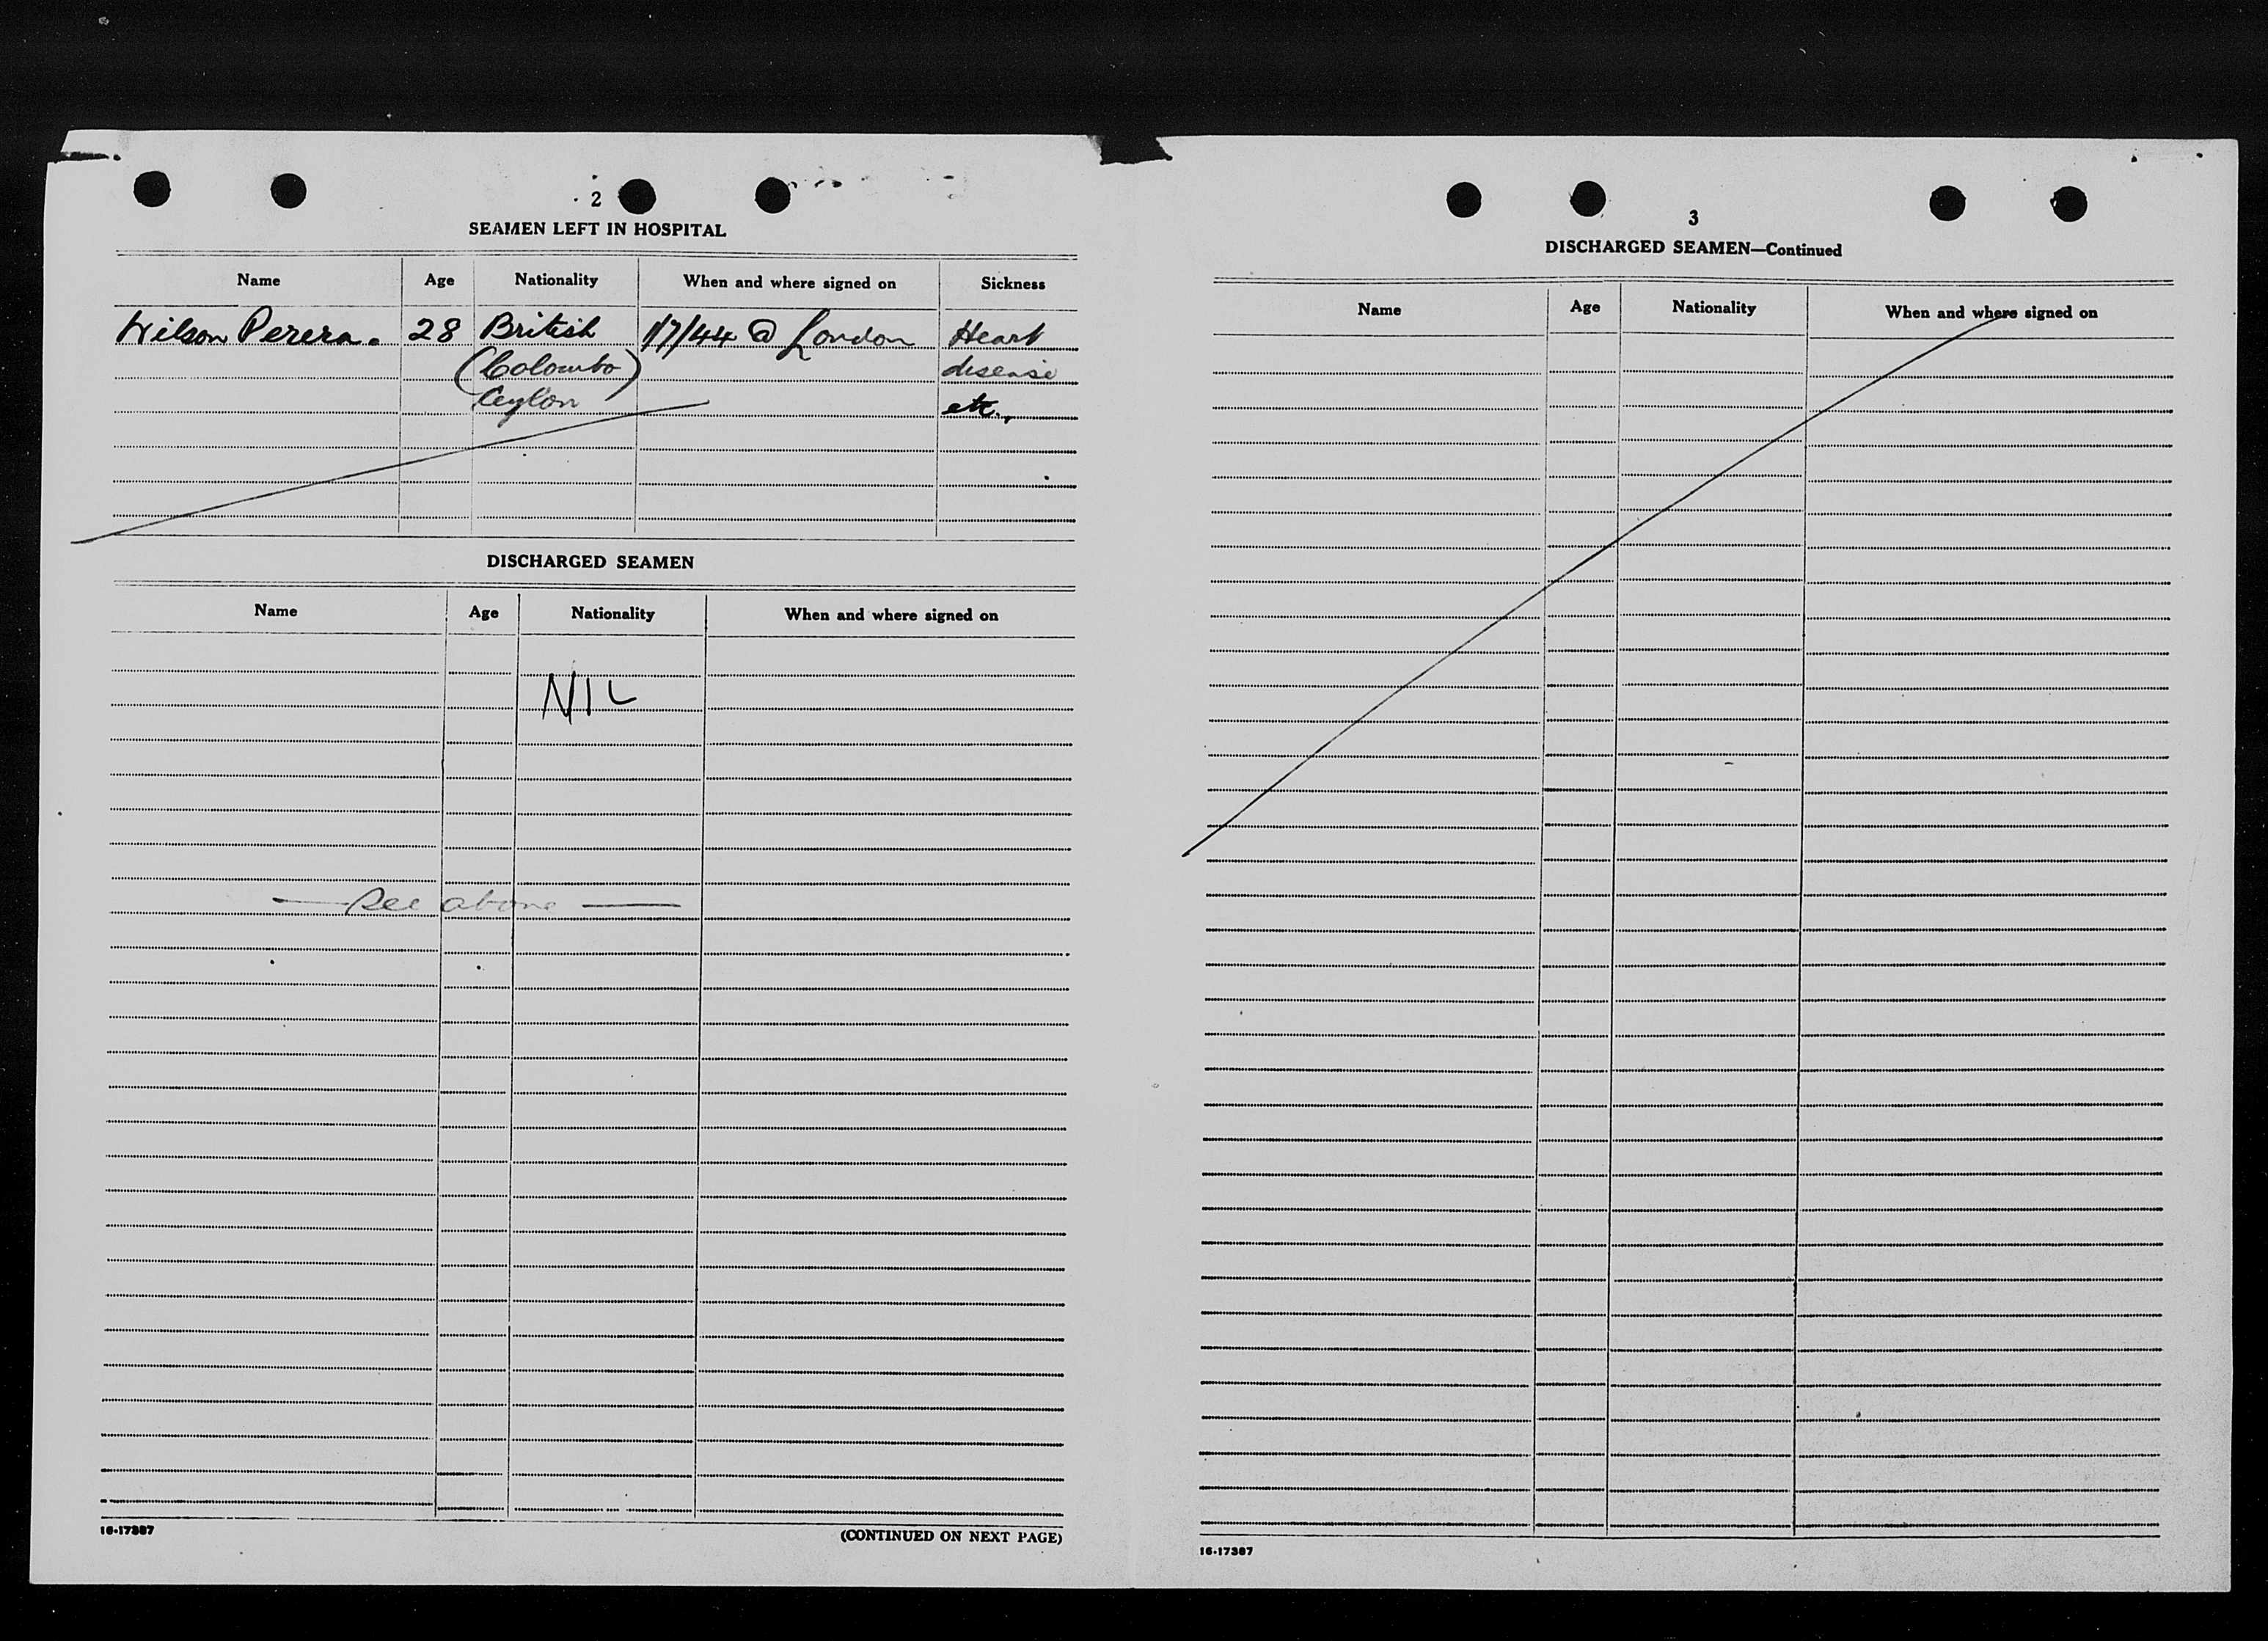 2
SEAMEN LEFT IN HOSPITAL
Name Age Nationality When and where signed on Sickness
Wilson Perera. 28 British 1/7/44 @ London Heart
(Colombo) disease
Ceylon etc.,
DISCHARGED SEAMEN
Name Age Nationality When and where signed on
NIL
— See above —
16-17387 (CONTINUED ON NEXT PAGE)
3
DISCHARGED SEAMEN—Continued
Name Age Nationality When and where signed on
16-17387